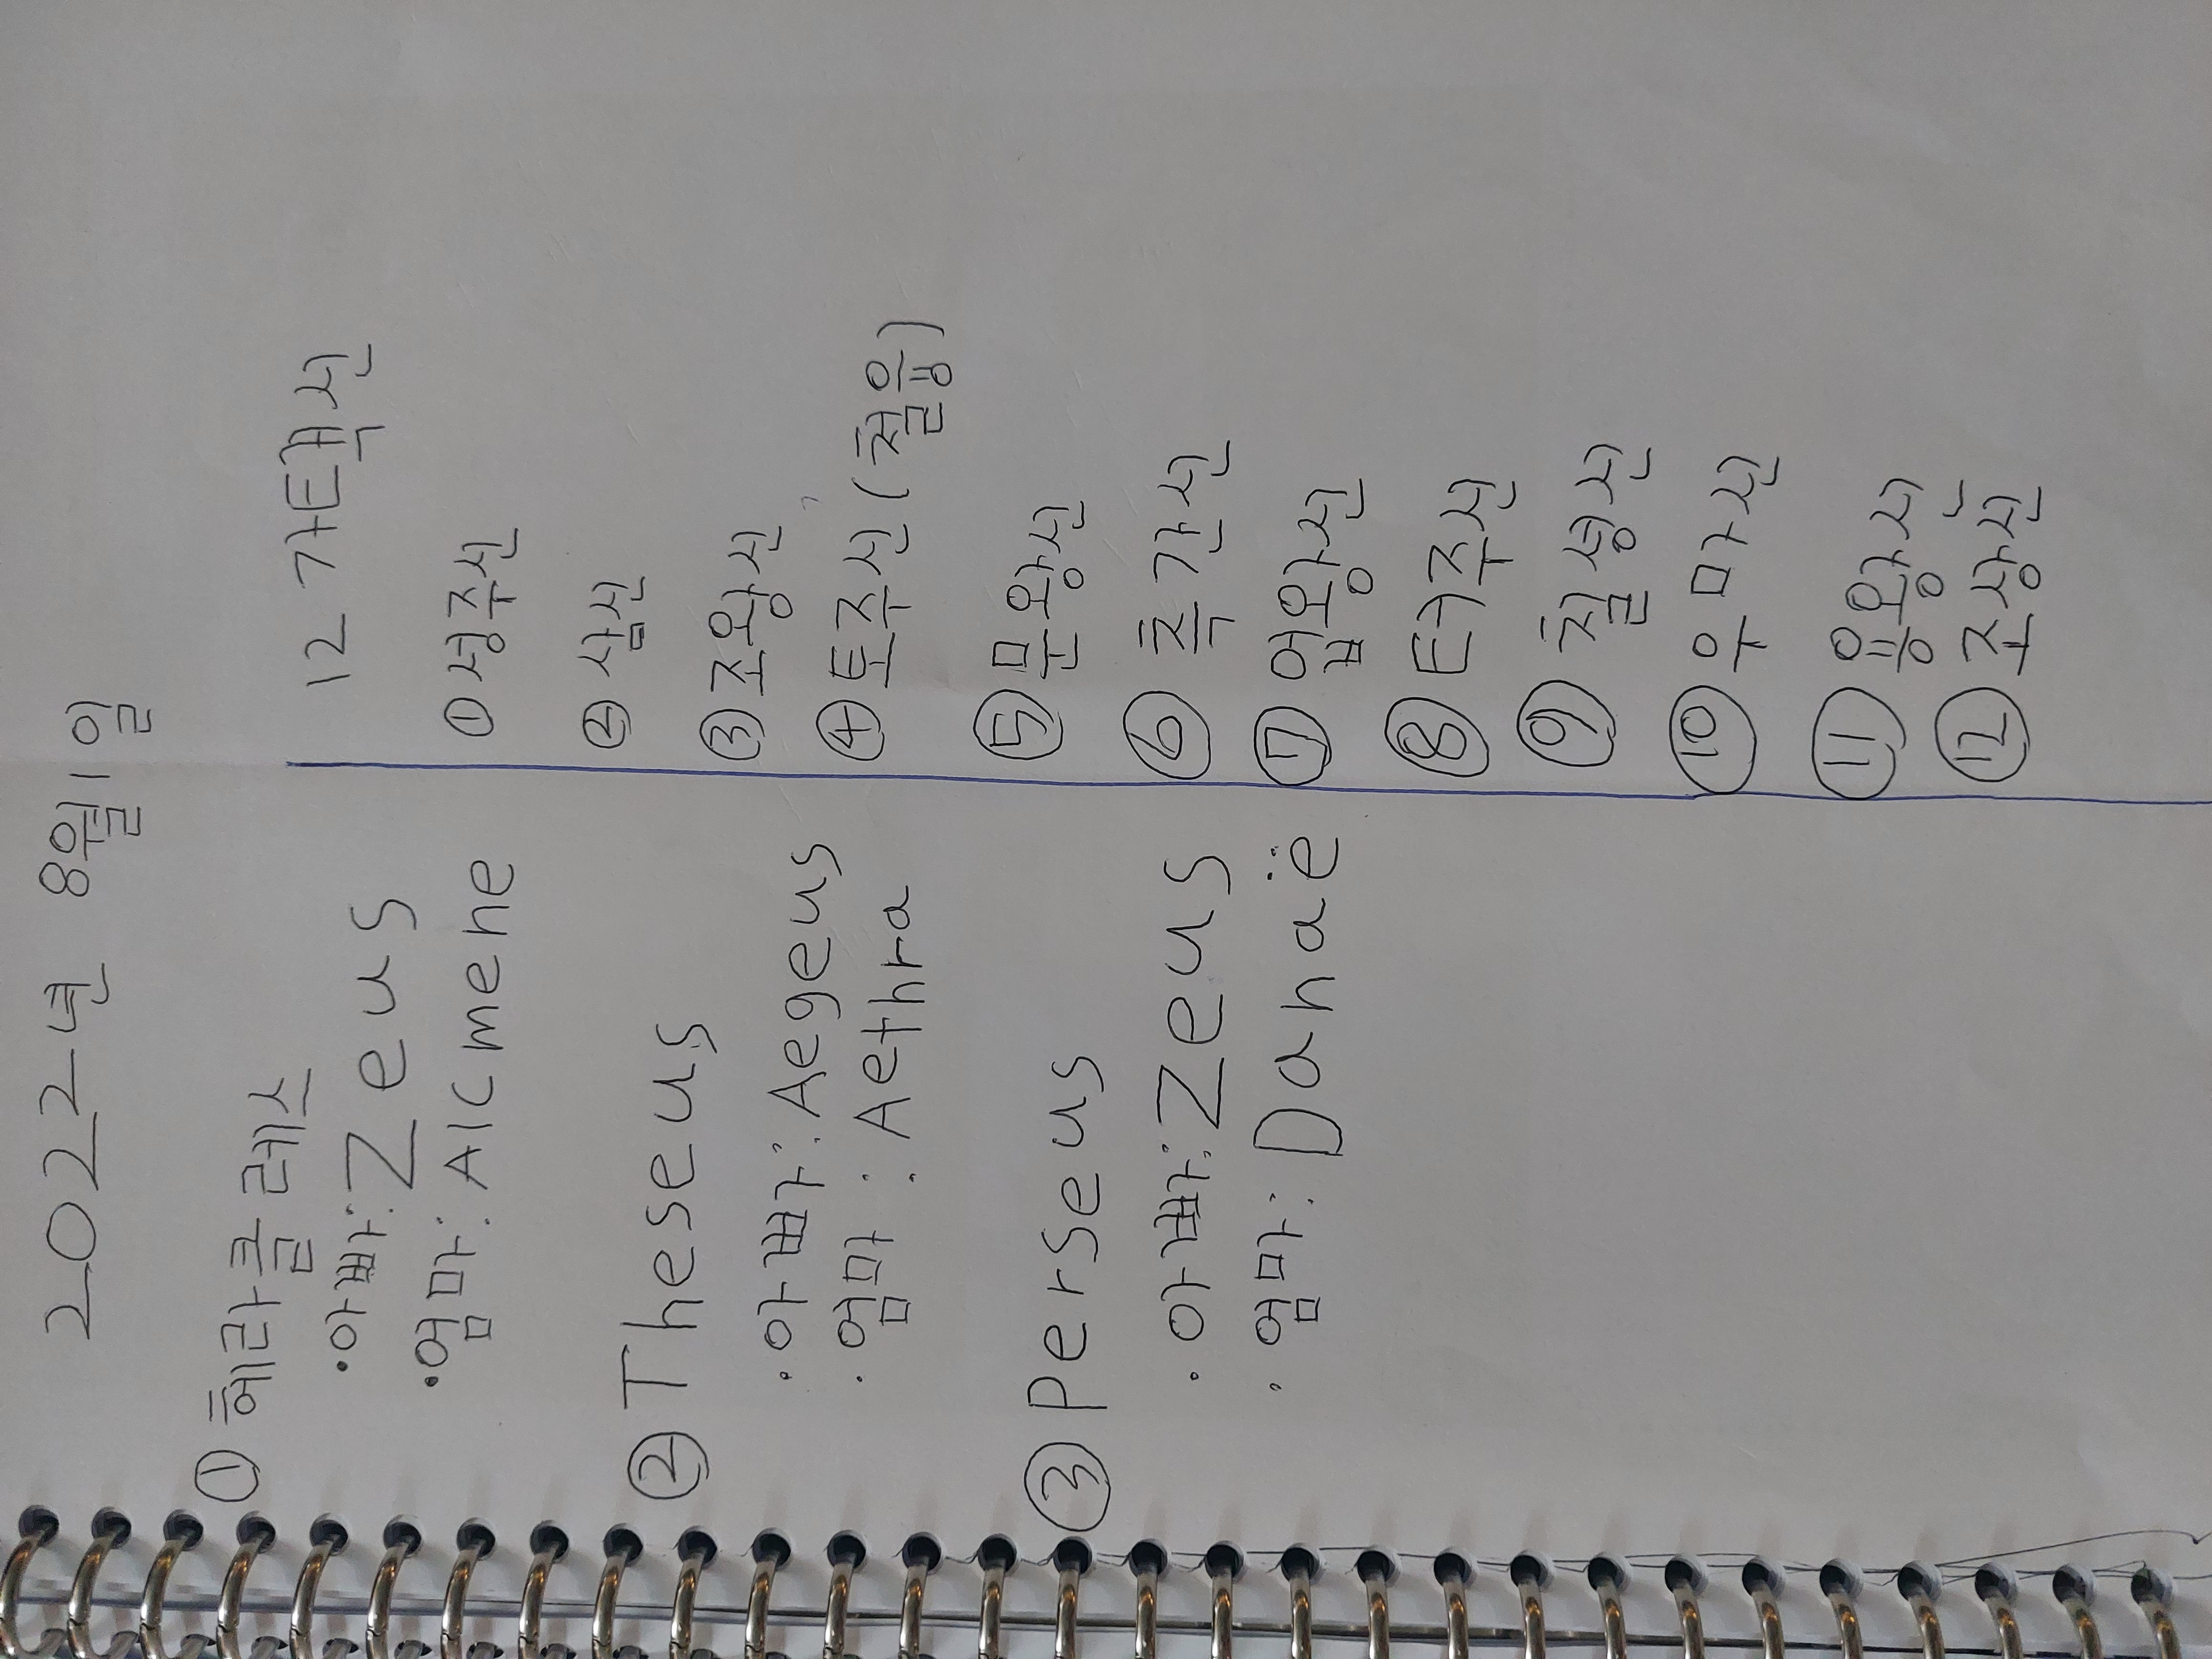 2022년 8월 1일
① 헤라클레스
· 아빠: Zeus
· 엄마: Alcmene
② Theseus
· 아빠: Aegeus
· 엄마: Aethra
③ Perseus
· 아빠: Zeus
· 엄마: Danaë
12 가택신
① 성주신
② 삼신
③ 조왕신
④ 토주신 (철융)
⑤ 문왕신
⑥ 측간신
⑦ 업왕신
⑧ 터주신
⑨ 칠성신
⑩ 우마신
⑪ 융왕신
⑫ 조상신